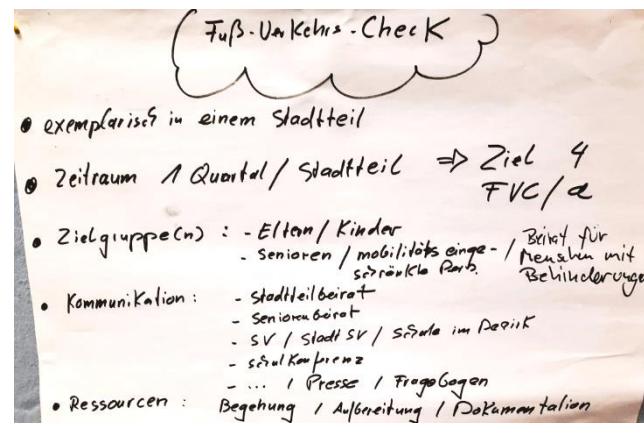 Fuß-Verkehrs-Check
• exemplarisch in einem Stadtteil
• Zeitraum 1 Quartal / Stadtteil ⇒ Ziel 4
FVC/a
• Zielgruppe(n) : - Eltern / Kinder
- Senioren / mobilitäts einge- / Beirat für
schränkte Pers. Menschen mit
Behinderungen
• Kommunikation : - Stadtteilbeirat
- Seniorenbeirat
- SV / Stadt SV / Schule im Bezirk
- Schulkonferenz
- ... / Presse / Fragebogen
• Ressourcen : Begehung / Aufbereitung / Dokumentation